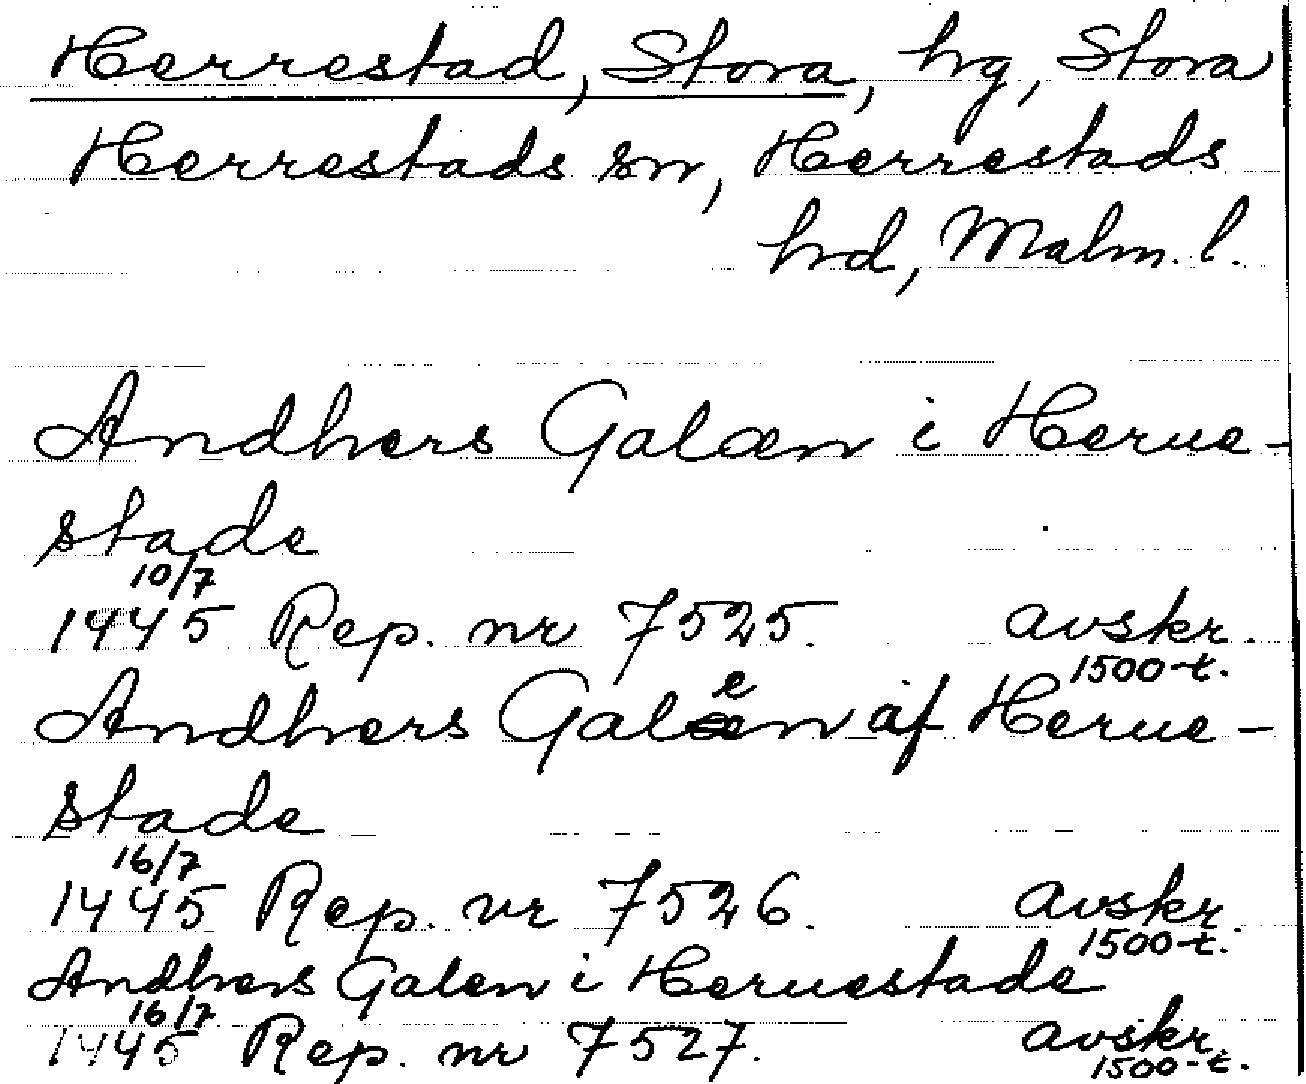 Herrestad, Stora, hg, Stora
Herrestads sn, Herrestads
hd, Malm. l.
Andhers Galæn i Herue-
stade
10/7
1445 Rep. nr 7525. avskr.
1500-t.
Andhers Galen af Herue-
stade
16/7
1445 Rep. nr 7526. avskr.
1500-t.
Andhers Galen i Heruestade
16/7
1445 Rep. nr 7527. avskr.
1500-t.